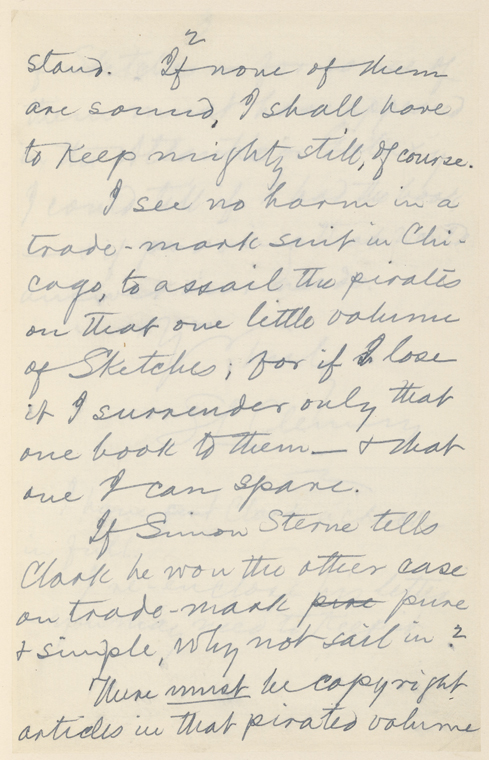 2
stand. If none of them
are sound, I shall have
to keep mighty still, of course.
I see no harm in a
trade-mark suit in Chi-
cago, to assail the pirates
on that one little volume
of Sketches; for if I lose
it I surrender only that
one book to them — & that
one I can spare.
If Simon Sterne tells
Clark he won the other case
on trade-mark pure pure
& simple, why not sail in?
There must be copyright
articles in that pirated volume